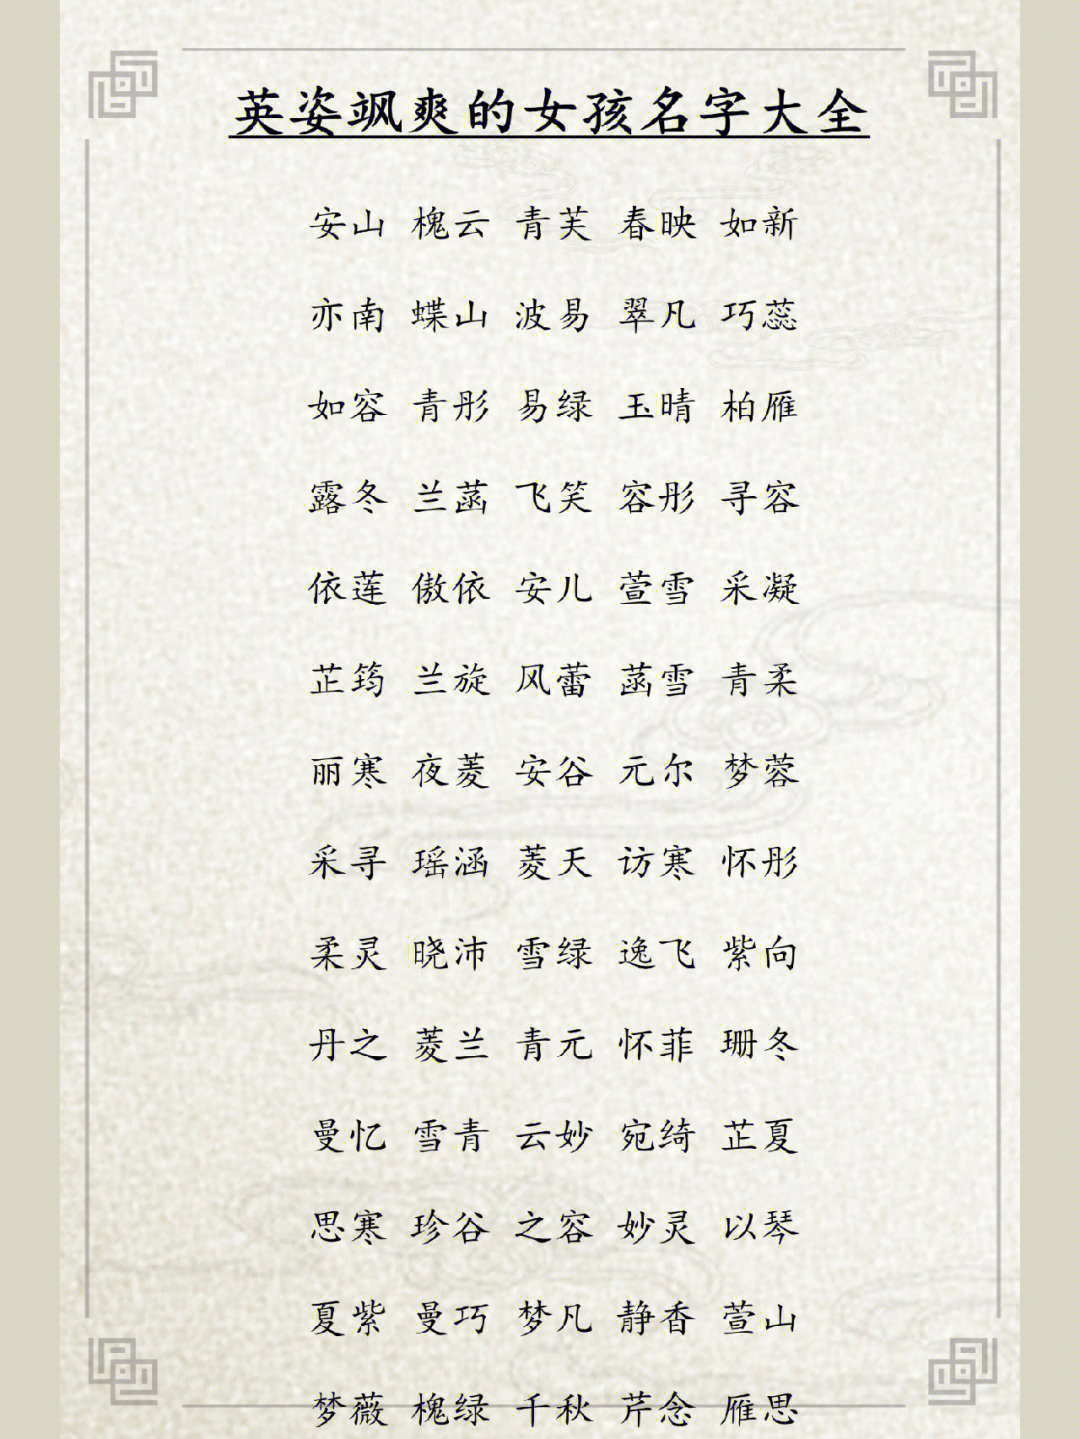 英姿飒爽的女孩名字大全
安山 槐云 青芙 春映 如新
亦南 蝶山 波易 翠凡 巧蕊
如容 青彤 易绿 玉晴 柏雁
露冬 兰菡 飞笑 容彤 寻容
依莲 傲依 安儿 萱雪 采凝
芷筠 兰旋 风蕾 菡雪 青柔
丽寒 夜菱 安谷 元尔 梦蓉
采寻 瑶涵 菱天 访寒 怀彤
柔灵 晓沛 雪绿 逸飞 紫向
丹之 菱兰 青元 怀菲 珊冬
曼忆 雪青 云妙 宛绮 芷夏
思寒 珍谷 之容 妙灵 以琴
夏紫 曼巧 梦凡 静香 萱山
梦薇 槐绿 千秋 芹念 雁思